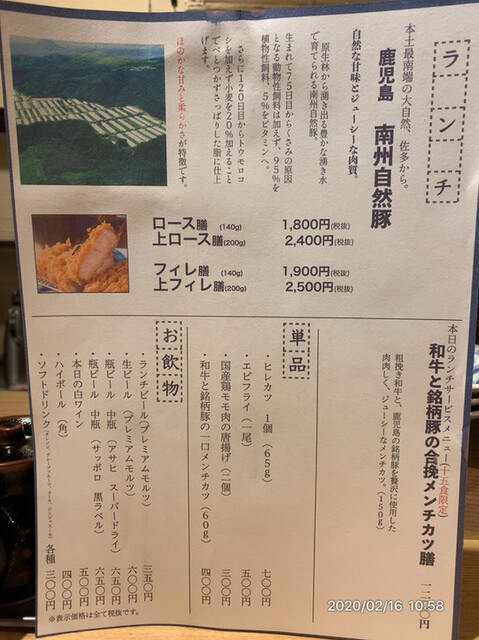 ランチ
本土最南端の大自然、佐多から。
鹿児島 南州自然豚
自然な甘味とジューシーな肉質。
原生林から湧き出る豊かな湧き水
で育てられる南州自然豚。
生まれて75日目からくさみの原因
となる動物性飼料は加えず、95%を
植物性飼料、5%をビタミンへ。
さらに120日目からトウモロコ
シを加えず小麦を20%加えること
でべとつかずさっぱりした脂に仕上
げます。
ほのかな甘みと柔らかさが特徴です。
ロース膳 (140g) 1,800円(税抜)
上ロース膳(200g) 2,400円(税抜)
フィレ膳 (140g) 1,900円(税抜)
上フィレ膳(200g) 2,500円(税抜)
本日のランチサービスメニュー(十五食限定)
和牛と銘柄豚の合挽メンチカツ膳
粗挽き和牛と、鹿児島の銘柄豚を贅沢に使用した
肉肉しく、ジューシーなメンチカツ。(150g)
単品
・ヒレカツ 1個(65g) 七〇〇円
・エビフライ(一尾) 五〇〇円
・国産鶏モモ肉の唐揚げ(二個) 三〇〇円
・和牛と銘柄豚の一口メンチカツ(60g) 四〇〇円
お飲物
・ランチビール(プレミアムモルツ) 三五〇円
・生ビール(プレミアムモルツ) 六〇〇円
・瓶ビール 中瓶(アサヒ スーパードライ) 六五〇円
・瓶ビール 中瓶(サッポロ 黒ラベル) 六五〇円
・本日の白ワイン 五〇〇円
・ハイボール(角) 四〇〇円
・ソフトドリンク 各種 三〇〇円
※表示価格は全て税抜です。
2020/02/16 10:58